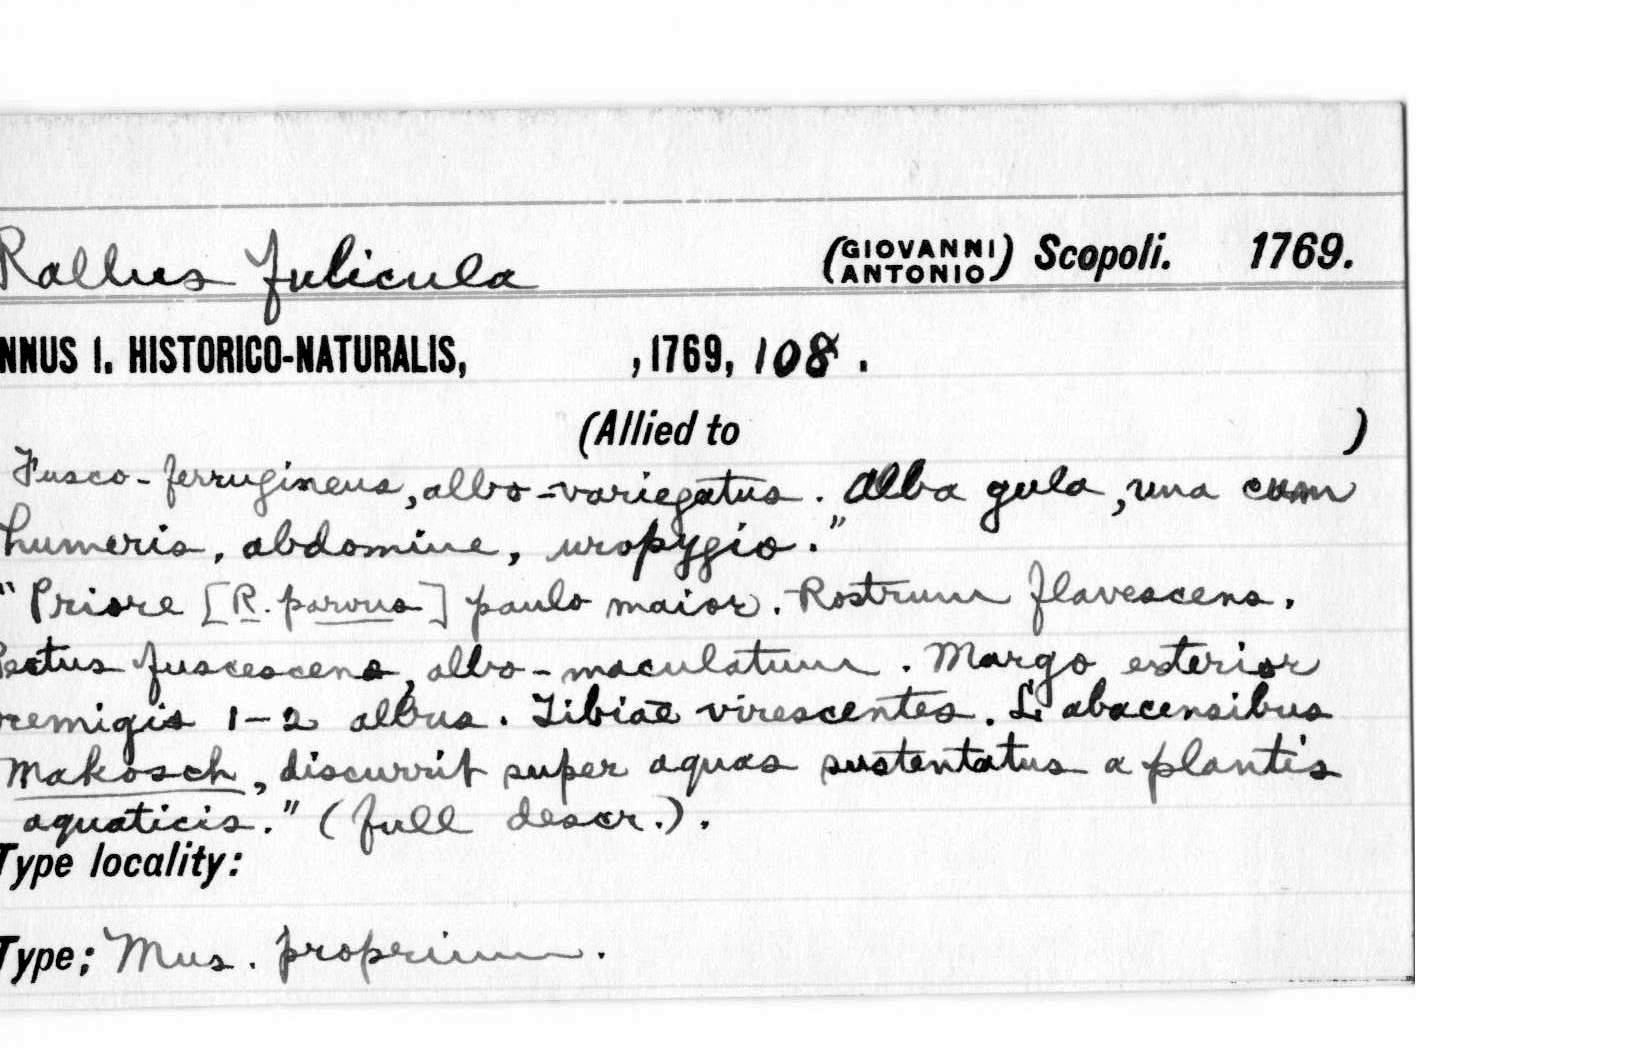 Rallus fulicula (GIOVANNI ANTONIO) Scopoli. 1769.
NNUS I. HISTORICO-NATURALIS, , 1769, 108 .
(Allied to )
Fusco-ferrugineus, albo-variegatus. Alba gula, una cum
humeris, abdomine, uropygio."
"Priore [R. parvus] paulo maior. Rostrum flavescens.
Pectus fuscescens, albo-maculatum. Margo exterior
remigis 1-2 albus. Tibiae virescentes. L abacensibus
Makosch, discurrit super aquas sustentatus a plantis
aquaticis." (full descr.).
Type locality:
Type; Mus. proprium.